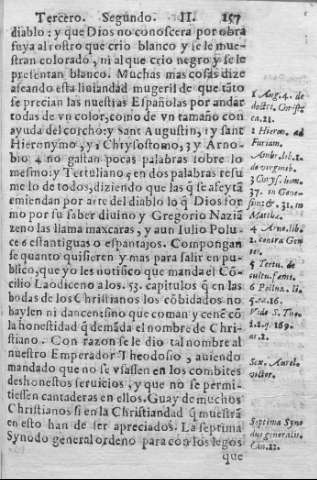 Tercero. Segundo. II. 157
diablo: y que Dios no conoscera por obra
suya al rostro que crio blanco y se le mue-
stran colorado, ni al que crio negro y se le
presentan blanco. Muchas mas cosas dize
afeando esta liuiandad mugeril de que tãto
se precian las nuestras Españolas por andar
todas de vn color, como de vn tamaño con
ayuda del corcho: y Sant Augustin, 1 y sant
Hieronymo, y 2 Chrysostomo, 3 y Arno-
bio 4 no gastan pocas palabras sobre lo
mesmo: y Tertuliano 5 en dos palabras resu
me lo de todos, diziendo que las q̃ se afeytã
emiendan por arte del diablo lo q̃ Dios for
mo por su saber diuino y Gregorio Naziã
zeno las llama maxcaras, y aun Iulio Polu-
ce 6 estantiguas o espantajos. Compongan
se quanto quisieren y mas para salir en pu-
blico, que yo les notifico que manda el Cõ-
cilio Laodiceno a los. 53. capitulos q̃ en las
bodas de los Christianos los cõbidados no
baylen ni dancen: sino que coman y cenẽ cõ
la honestidad q̃ demãda el nombre de Chri-
stiano. Con razon se le dio tal nombre al
nuestro Emperador Theodosio, auiendo
mandado que no se vsassen en los combites
deshonestos seruicios, y que no se permi-
tiessen cantaderas en ellos. Guay de muchos
Christianos si en la Christiandad q̃ muestrã
en esto han de ser apreciados. La septima
Synodo general ordeno para con los legos
que
1 Aug. 4. de
doctri. Christi
ca. 21.
2 Hierm. ad
Furiam.
Ambr. lib. 1.
de virginib.
3 Chrys. hom.
37. in Gene
sim & 31. in
Matth.
4 Arno. lib.
2. contra Gen
tes.
5 Tertu. de
cultu. femi.
6 Pollux. li.
5. ca. 16.
Vide S. Tho.
2. 2. q 169.
ar. 2.
Sex. Aurel.
victor.
Septima Syno
dus generalis.
Can. 22.